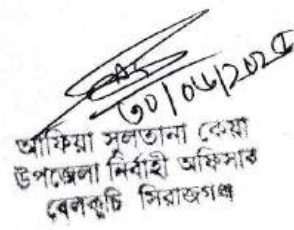 ৩০/০৬/২০২৫
আফিয়া সুলতানা কেয়া
উপজেলা নির্বাহী অফিসার
বেলকুচি সিরাজগঞ্জ